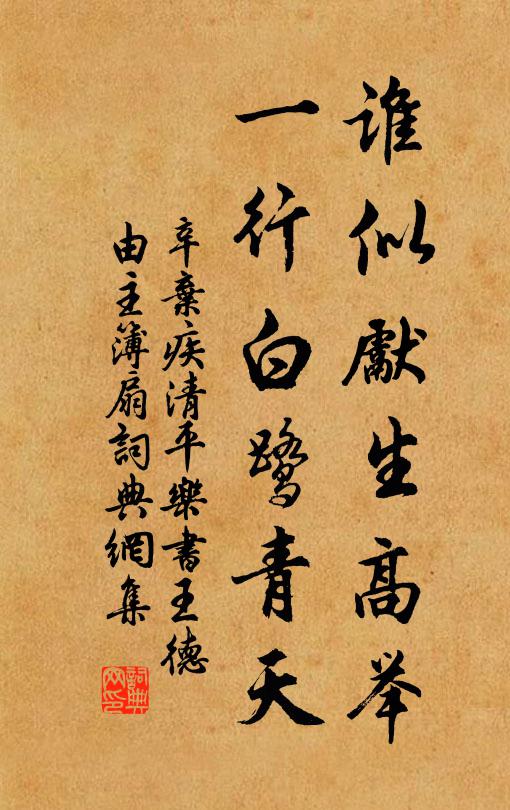 誰似獻生高举
一行白鹭青天
辛棄疾清平樂書王德
由主簿扇詞典網集
詞典网印